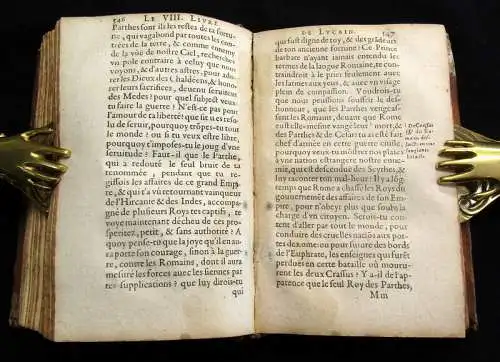 546 LE VIII. LIVRE
Parthes sont ils les restes de ta fortu-
ne, qui vagabond par toutes les con-
trées de la terre, & comme ennemy
de la voe de nostre Ciel, recherches
vn pole contraire à celuy que nous
voyons, & d'autres astres, pour ado-
rer les Dieux des Chaldéens, & pour
honorer leurs sacrifices, deuenu seruiteur
des Medes? pour quel subject veux-
tu faire la guerre? N'est-ce pas pour
l'amour de la liberté? que si tu es reso-
lu de seruir, pourquoy trõpes-tu tout
le monde? ou si tu veux estre libre,
pourquoy t'imposes-tu le joug d'vne
seruitude? Faut-il que le Parthe,
qui a redouté le seul bruit de ta
renommée, pendant que tu re-
gissois les affaires de ce grand Empi-
re, & qui t'a vû retournant vainqueur
de l'Hircanie & des Indes, accom-
pagné de plusieurs Roys tes captifs, te
voye maintenant décheu de ces pros-
peritez, petit, & sans authorité? A
quoy pense-tu que la joye qu'il en au-
ra porte son courage, sinon à la guer-
re, contre les Romains, dont il aura
mesuré les forces auec les siennes par
tes supplications? que luy dirois-tu
qui
DE LVCAIN. 547
qui fust digne de toy, & des grãdeurs
de ton ancienne fortune? Ce Prince
barbare n'ayant jamais entendu les
termes de la langue Romaine, te con-
traindroit à le prier seulement auec
les larmes aux yeux, & d'vne voix
pleine de compassion. Voudrois-tu
que nous peussions souffrir ce des-
honneur, que les Parthes vengeas-
sent les Romains, deuant que Rome
eust elle-mesme vengé leur mort, &
des Parthes & de Cesar? tu as esté fait
chef d'armée en cette guerre ciuile,
pourquoy veux-tu donc mettre plus
d'vne nation estrangere nostre enne-
mie, qui est descenduë des Scythes, &
luy raconter ton mal-heur? Il y a lõg-
temps que Rome a chassé les Roys du
gouuernement des affaires de son Em-
pire, pour n'obeyr plus que sous la
charge d'vn citoyen. Serois-tu con-
tent d'aller par tout le monde, pour
conduire des cruelles naciõs aux por-
tes de Rome: ou pour suiure des bords
de l'Euphrate, les enseignes qui furẽt
perduës en cette bataille où mouru-
rent les deux Crassus? Y a-il de l'ap-
parence que le seul Roy des Parthes,
Mm